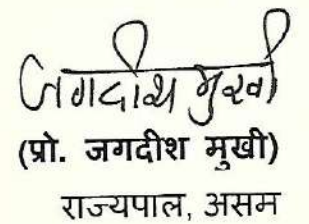 जगदीश मुखी
(प्रो. जगदीश मुखी)
राज्यपाल, असम